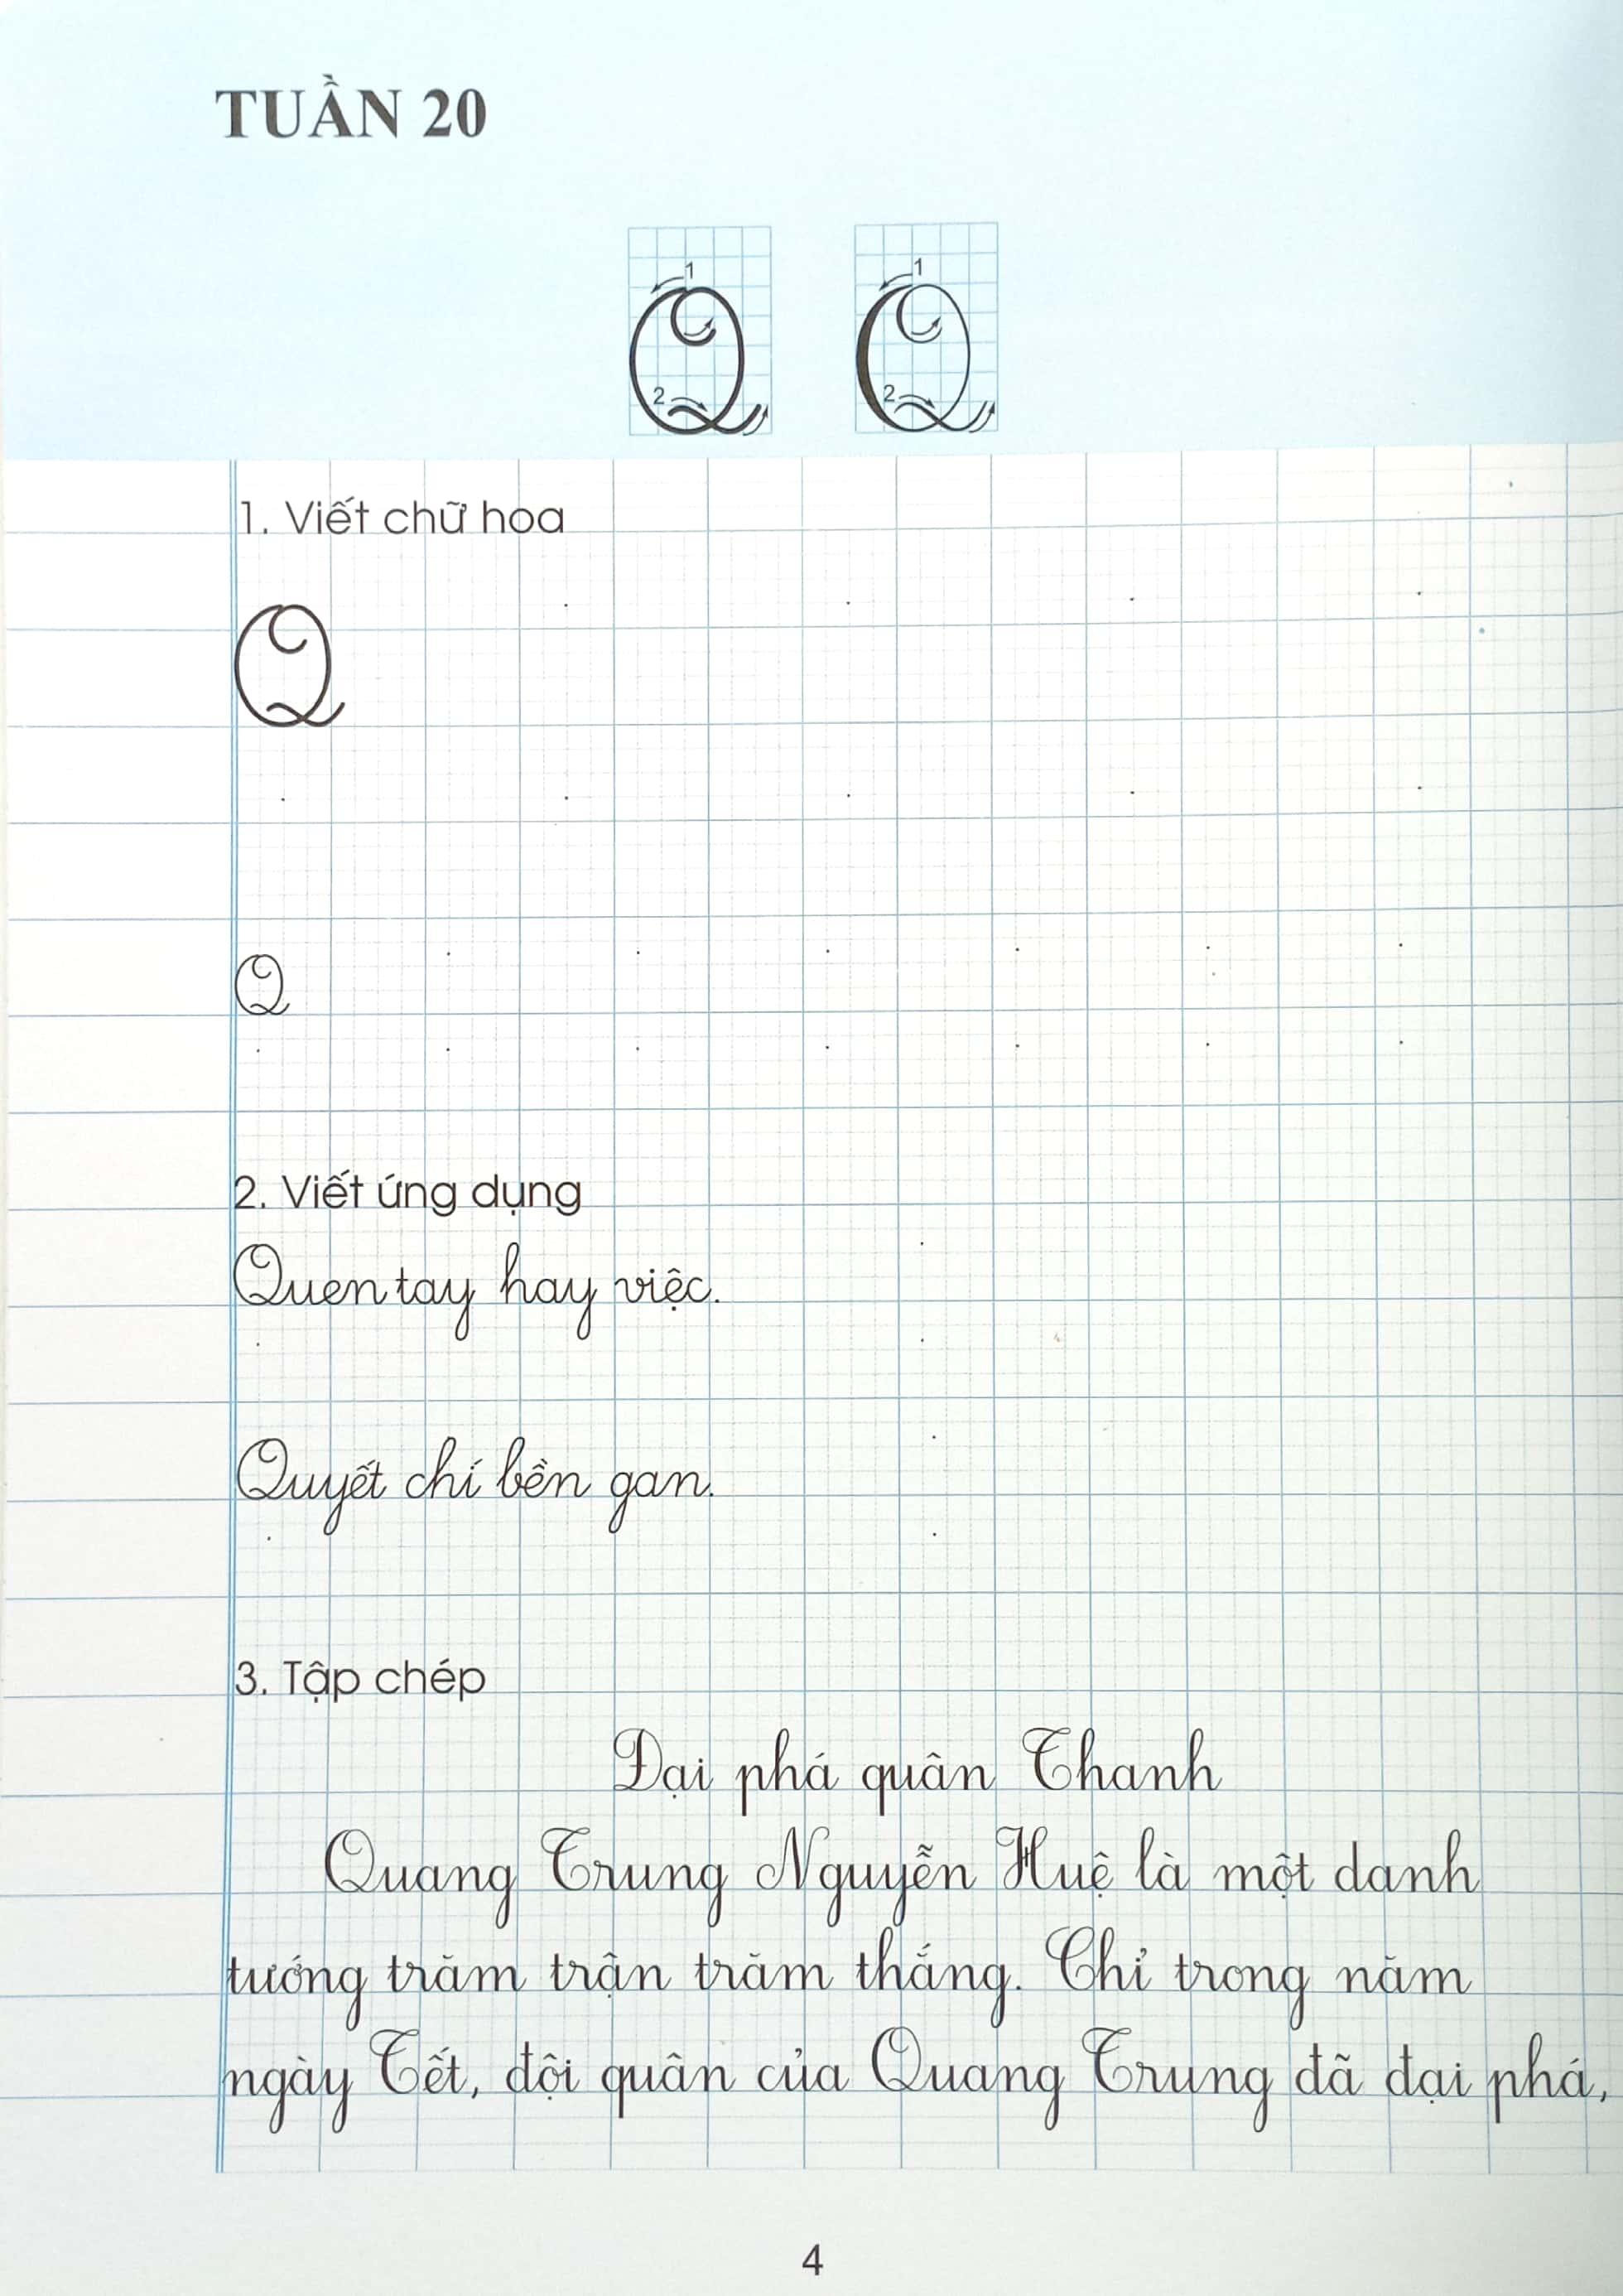 TUẦN 20
1 1
2 2
1. Viết chữ hoa
Q
Q
2. Viết ứng dụng
Quen tay hay việc.
Quyết chí bền gan.
3. Tập chép
Đại phá quân Thanh
Quang Trung Nguyễn Huệ là một danh
tướng trăm trận trăm thắng. Chỉ trong năm
ngày Tết, đội quân của Quang Trung đã đại phá,
4